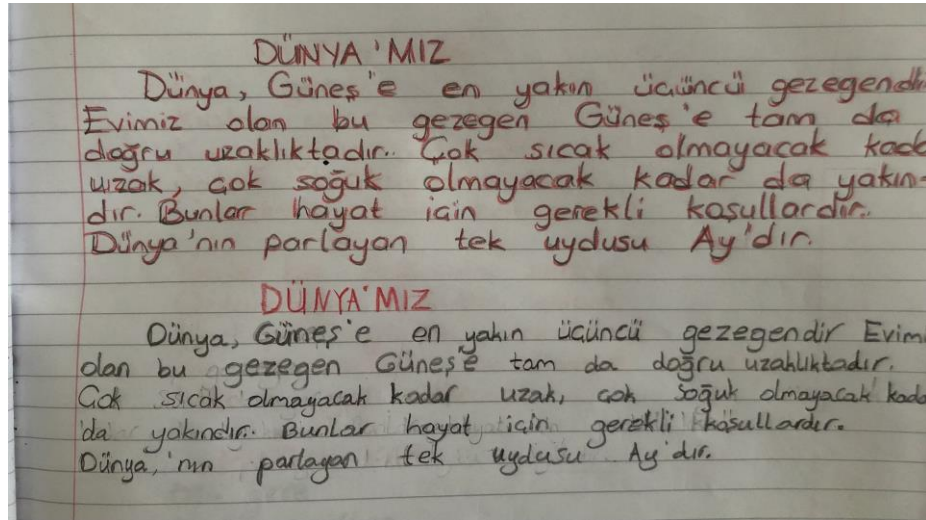 DÜNYA'MIZ
Dünya, Güneş'e en yakın üçüncü gezegendir
Evimiz olan bu gezegen Güneş'e tam da
doğru uzaklıktadır. Çok sıcak olmayacak kada
uzak, çok soğuk olmayacak kadar da yakın-
dır. Bunlar hayat için gerekli koşullardır.
Dünya'nın parlayan tek uydusu Ay'dır.
DÜNYA'MIZ
Dünya, Güneş'e en yakın üçüncü gezegendir Evim
olan bu gezegen Güneş'e tam da doğru uzaklıktadır.
Çok sıcak olmayacak kadar uzak, çok soğuk olmayacak kada
da yakındır. Bunlar hayat için gerekli koşullardır.
Dünya,'nın parlayan tek uydusu Ay'dır.